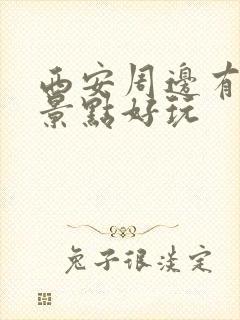 西安周邊有
景點好玩
兔子很淡定